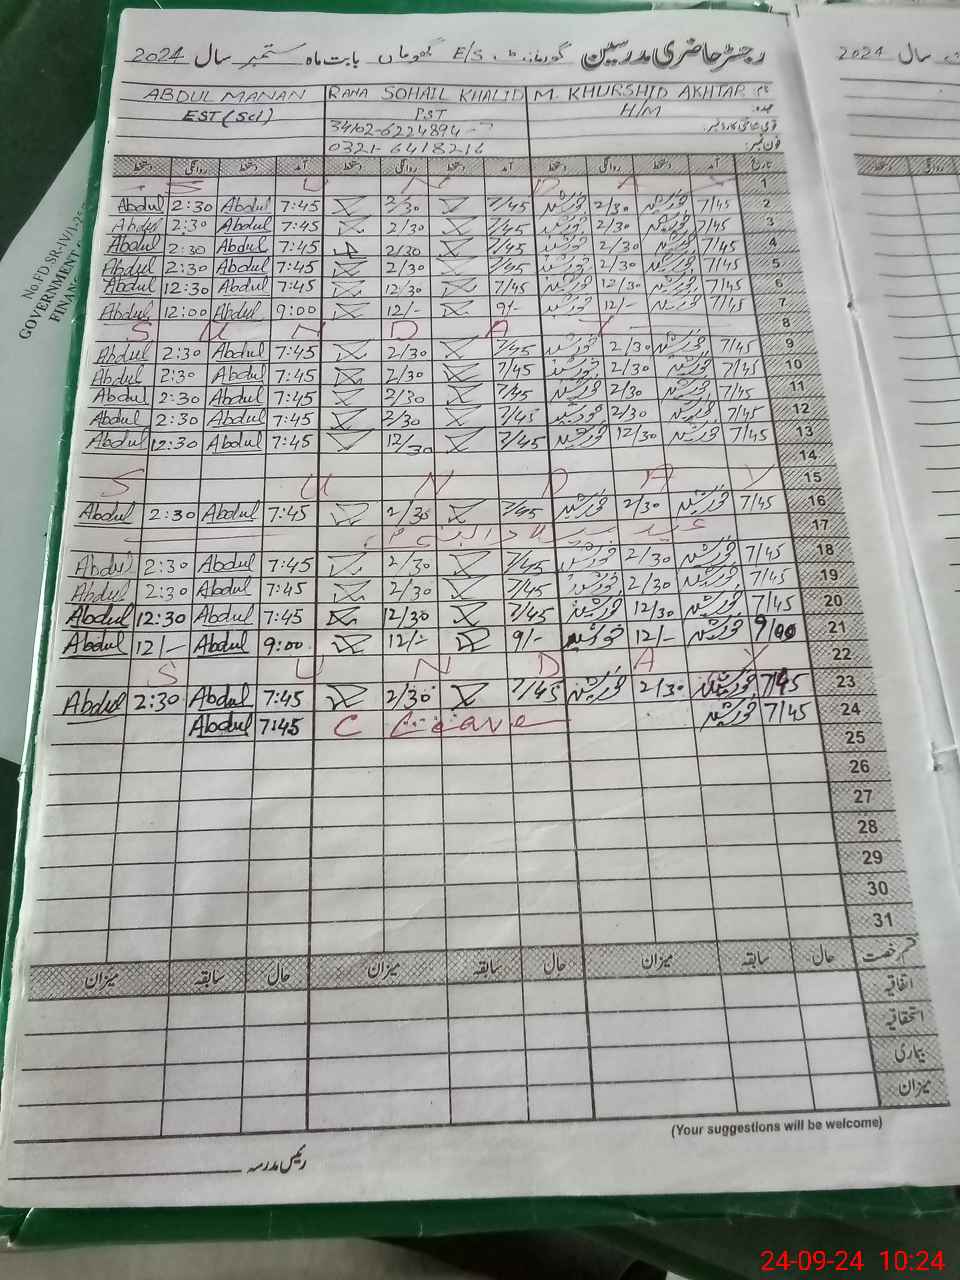 رجسٹر حاضری مدرسین گورنمنٹ E/S بابت ماہ ستمبر سال 2024
2024 سال
نام M. KHURSHID AKHTAR RANA SOHAIL KHALID ABDUL MANAN
عہدہ H/M PST EST (Sci)
قومی شناختی کارڈ نمبر: 34102-6224894-7
فون نمبر: 0321-6418216
تاریخ آمد دستخط روانگی دستخط آمد دستخط روانگی دستخط آمد دستخط روانگی دستخط
S U N D A Y 1
Abdul 2:30 Abdul 7:45 2/30 7/45 خورشید 2/30 خورشید 7/45 2
Abdul 2:30 Abdul 7:45 2/30 7/45 خورشید 2/30 خورشید 7/45 3
Abdul 2:30 Abdul 7:45 2/30 7/45 خورشید 2/30 خورشید 7/45 4
Abdul 2:30 Abdul 7:45 2/30 7/45 خورشید 2/30 خورشید 7/45 5
Abdul 12:30 Abdul 7:45 12/30 7/45 خورشید 12/30 خورشید 7/45 6
Abdul 12:00 Abdul 9:00 12/- 9/- خورشید 12/- خورشید 7/45 7
S U N D A Y 8
Abdul 2:30 Abdul 7:45 2/30 7/45 خورشید 2/30 خورشید 7/45 9
Abdul 2:30 Abdul 7:45 2/30 7/45 خورشید 2/30 خورشید 7/45 10
Abdul 2:30 Abdul 7:45 2/30 7/45 خورشید 2/30 خورشید 7/45 11
Abdul 2:30 Abdul 7:45 2/30 7/45 خورشید 2/30 خورشید 7/45 12
Abdul 12:30 Abdul 7:45 12/30 7/45 خورشید 12/30 خورشید 7/45 13
14
S U N D A Y 15
Abdul 2:30 Abdul 7:45 2/30 7/45 خورشید 2/30 خورشید 7/45 16
عید میلاد النبی 17
Abdul 2:30 Abdul 7:45 2/30 7/45 خورشید 2/30 خورشید 7/45 18
Abdul 2:30 Abdul 7:45 2/30 7/45 خورشید 2/30 خورشید 7/45 19
Abdul 12:30 Abdul 7:45 12/30 7/45 خورشید 12/30 خورشید 7/45 20
Abdul 12/- Abdul 9:00 12/- 9/- خورشید 12/- خورشید 9/00 21
S U N D A Y 22
Abdul 2:30 Abdul 7:45 2/30 7/45 خورشید 2/30 خورشید 7/45 23
Abdul 7:45 C Leave خورشید 7/45 24
25
26
27
28
29
30
31
قسم رخصت حال سابقہ میزان حال سابقہ میزان حال سابقہ میزان
اتفاقیہ
استحقاقیہ
بیماری
میزان
(Your suggestions will be welcome)
رئیس مدرسہ
No.FD.SR-IV/1-
GOVERNMENT
FINAN
24-09-24 10:24